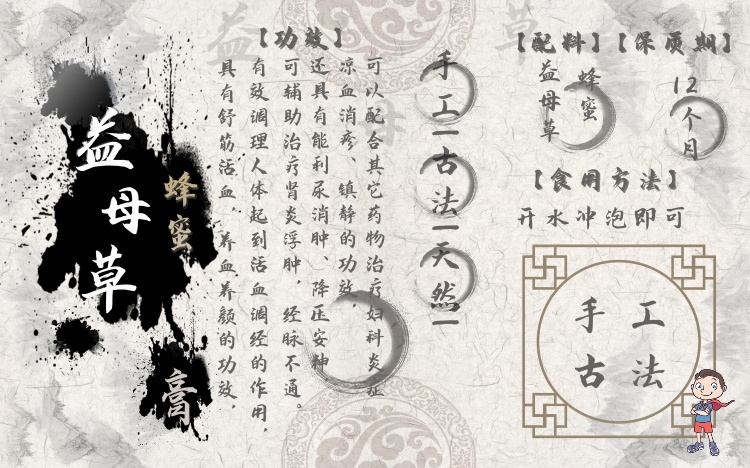 益母草
蜂蜜
膏
【功效】
具有舒筋活血、养血养颜的功效，
有效调理人体起到活血调经的作用，
可辅助治疗肾炎浮肿，经脉不通。
还具有能利尿消肿、降压安神，
凉血消疹、镇静的功效，
可以配合其它药物治疗妇科炎症
手工|古法|天然|
【配料】【保质期】
益母草
蜂蜜
12个月
【食用方法】
开水冲泡即可
手工
古法